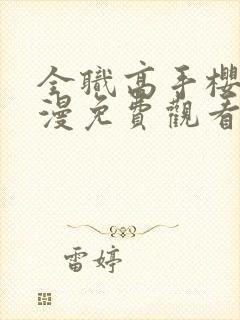 全職高手櫻
漫免費觀看
雷婷